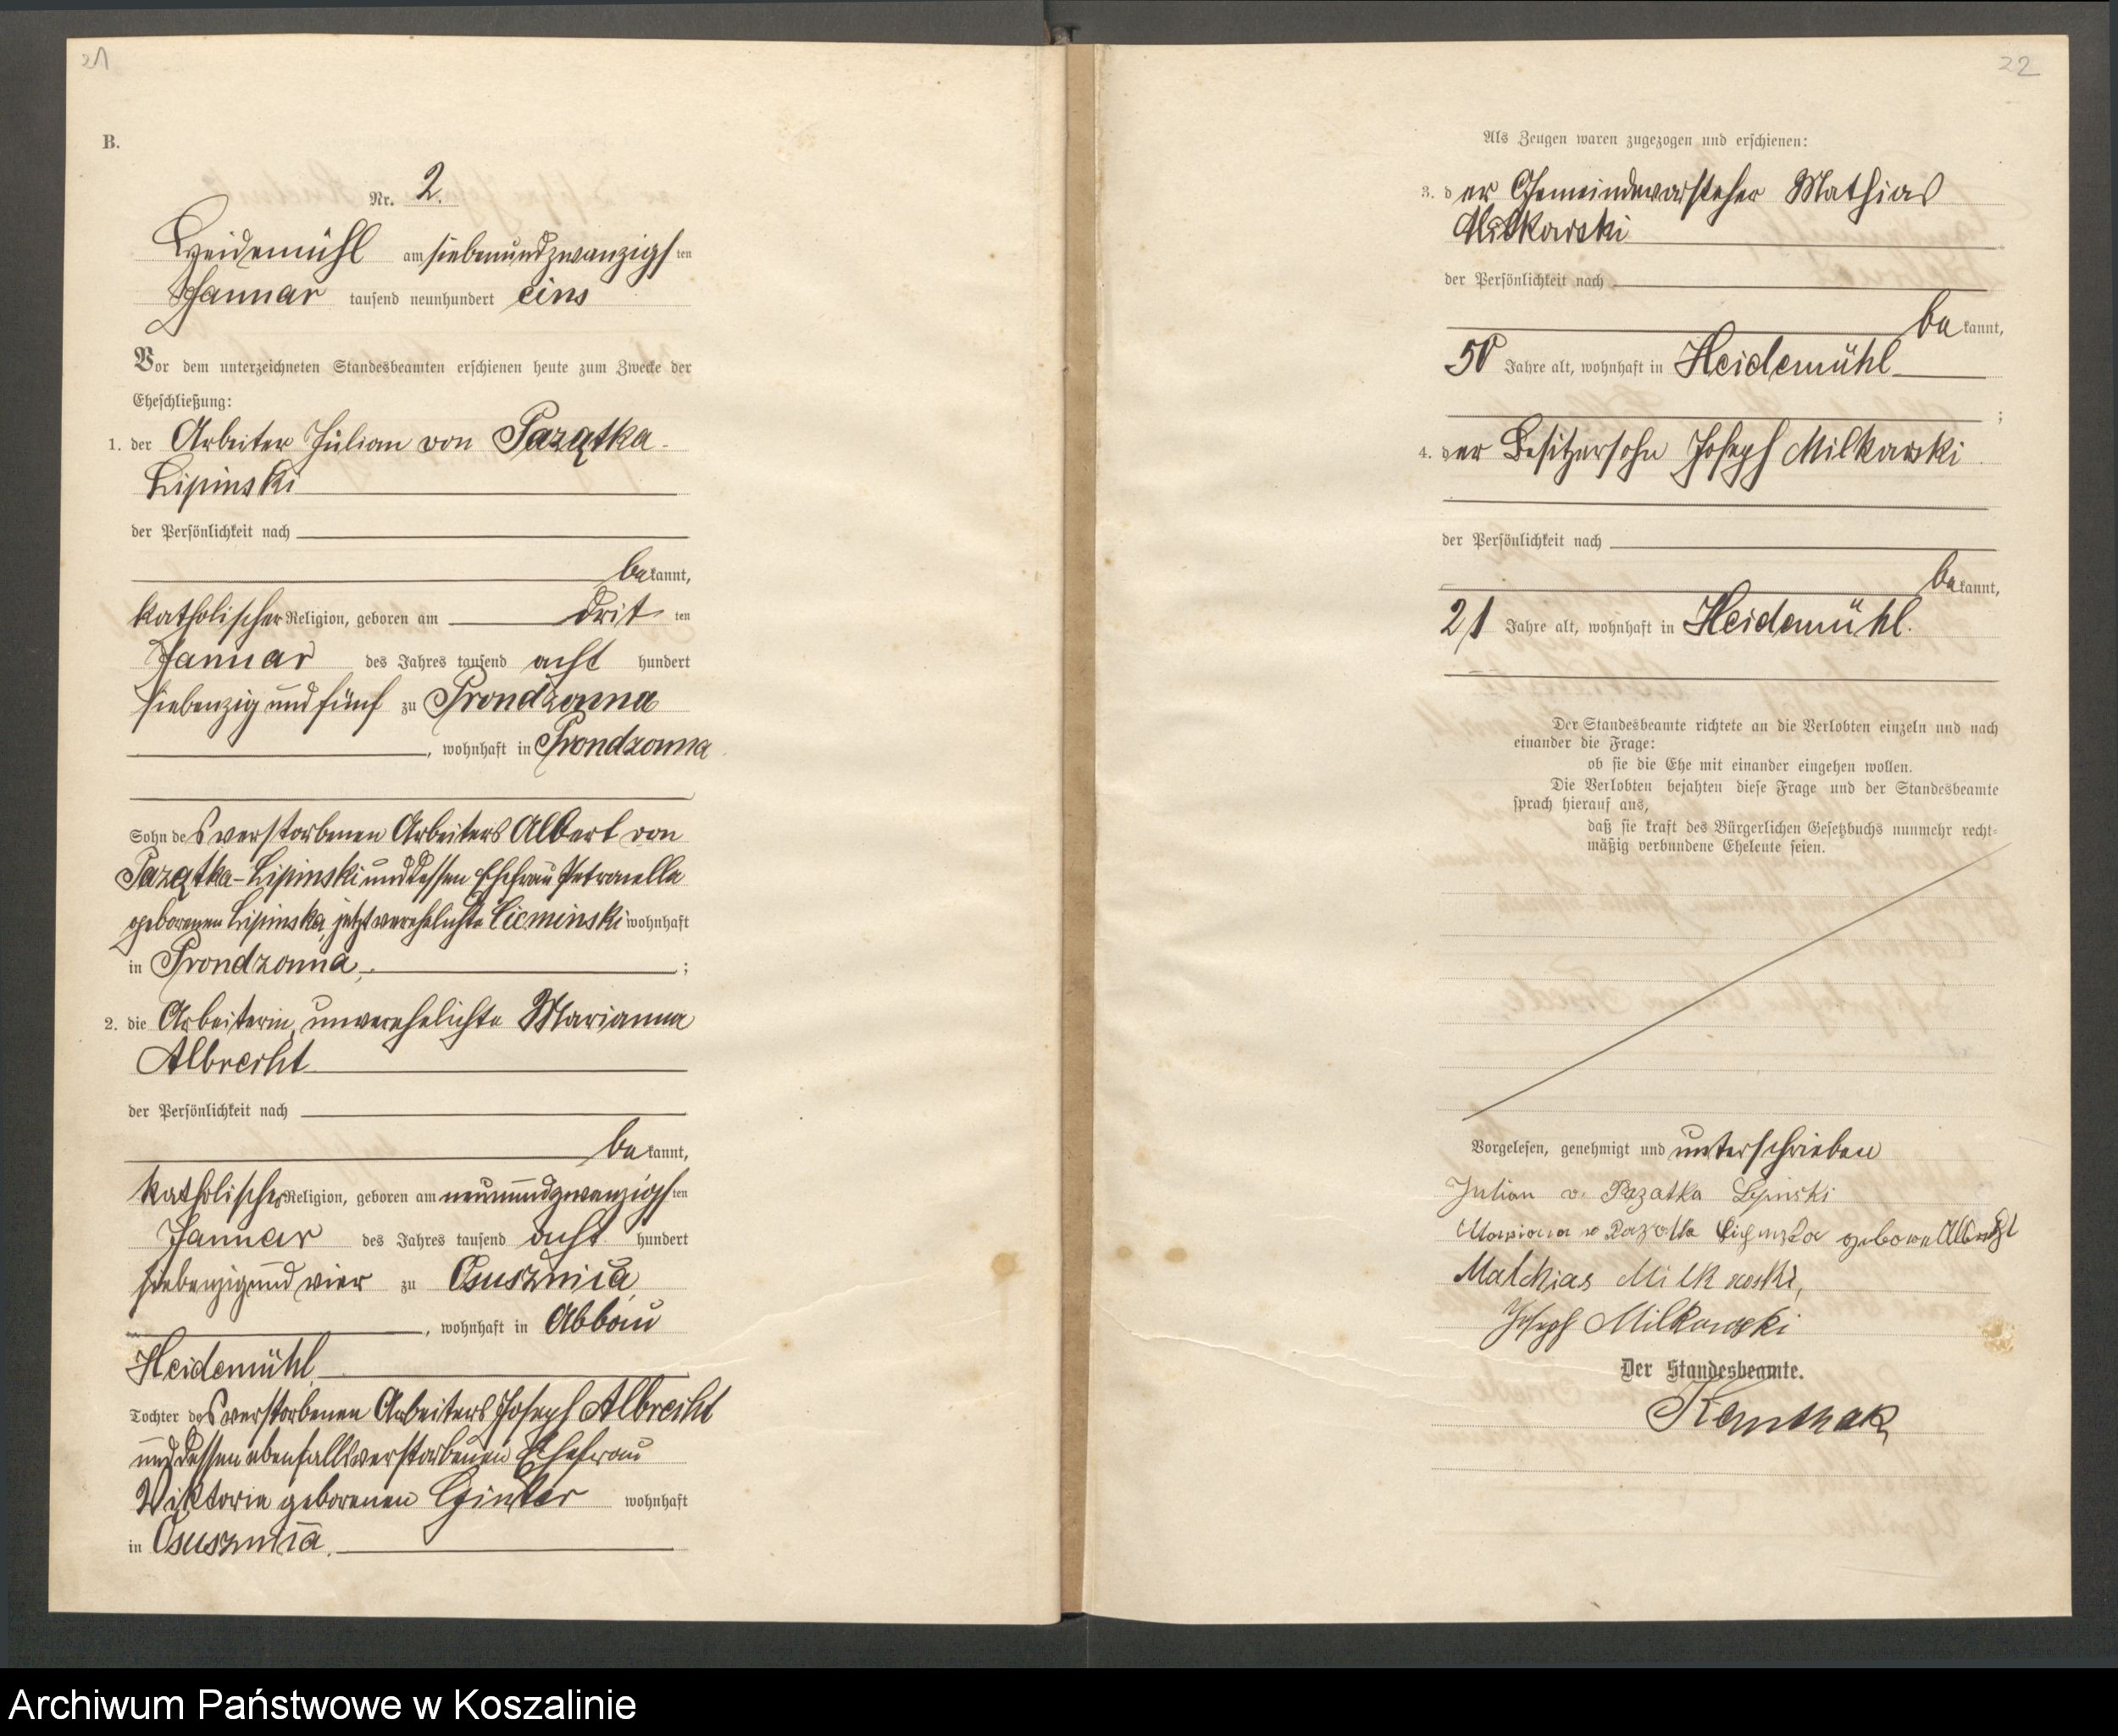 21
B.
Nr. 2.
Heidemühl am siebenundzwanzigsten
Januar tausend neunhundert eins
Vor dem unterzeichneten Standesbeamten erschienen heute zum Zwecke der
Eheschließung:
1. der Arbeiter Julian von Pazątka-
Lipinski
der Persönlichkeit nach
bekannt,
katholischer Religion, geboren am dritten
Januar des Jahres tausend acht hundert
siebenzig und fünf zu Prondzonna
, wohnhaft in Prondzonna
Sohn des verstorbenen Arbeiters Albert von
Pazątka-Lipinski und dessen Ehefrau Petronella
geborenen Lipinska, jetzt verehelichte Cieminski wohnhaft
in Prondzonna. ;
2. die Arbeiterin, unverehelichte Marianna
Albrecht
der Persönlichkeit nach
bekannt,
katholischer Religion, geboren am neunundzwanzigsten
Januar des Jahres tausend acht hundert
siebenzig und vier zu Osusznica
, wohnhaft in Abbau
Heidemühl,
Tochter des verstorbenen Arbeiters Joseph Albrecht
und dessen ebenfalls verstorbenen Ehefrau
Viktoria geborenen wohnhaft
in Osusznica.
22
Als Zeugen waren zugezogen und erschienen:
3. der Gemeindevorsteher Mathias
Milkowski
der Persönlichkeit nach
bekannt,
50 Jahre alt, wohnhaft in Heidemühl
;
4. der Besitzersohn Joseph Milkowski
der Persönlichkeit nach
bekannt,
21 Jahre alt, wohnhaft in Heidemühl.
Der Standesbeamte richtete an die Verlobten einzeln und nach
einander die Frage:
ob sie die Ehe mit einander eingehen wollen.
Die Verlobten bejahten diese Frage und der Standesbeamte
sprach hierauf aus,
daß sie kraft des Bürgerlichen Gesetzbuchs nunmehr recht-
mäßig verbundene Eheleute seien.
Vorgelesen, genehmigt und unterschrieben
Julian v. Pazatka Lipinski
geborene Albrecht
Mathias Milkowski,
Joseph Milkowski
Der Standesbeamte.
Archiwum Państwowe w Koszalinie